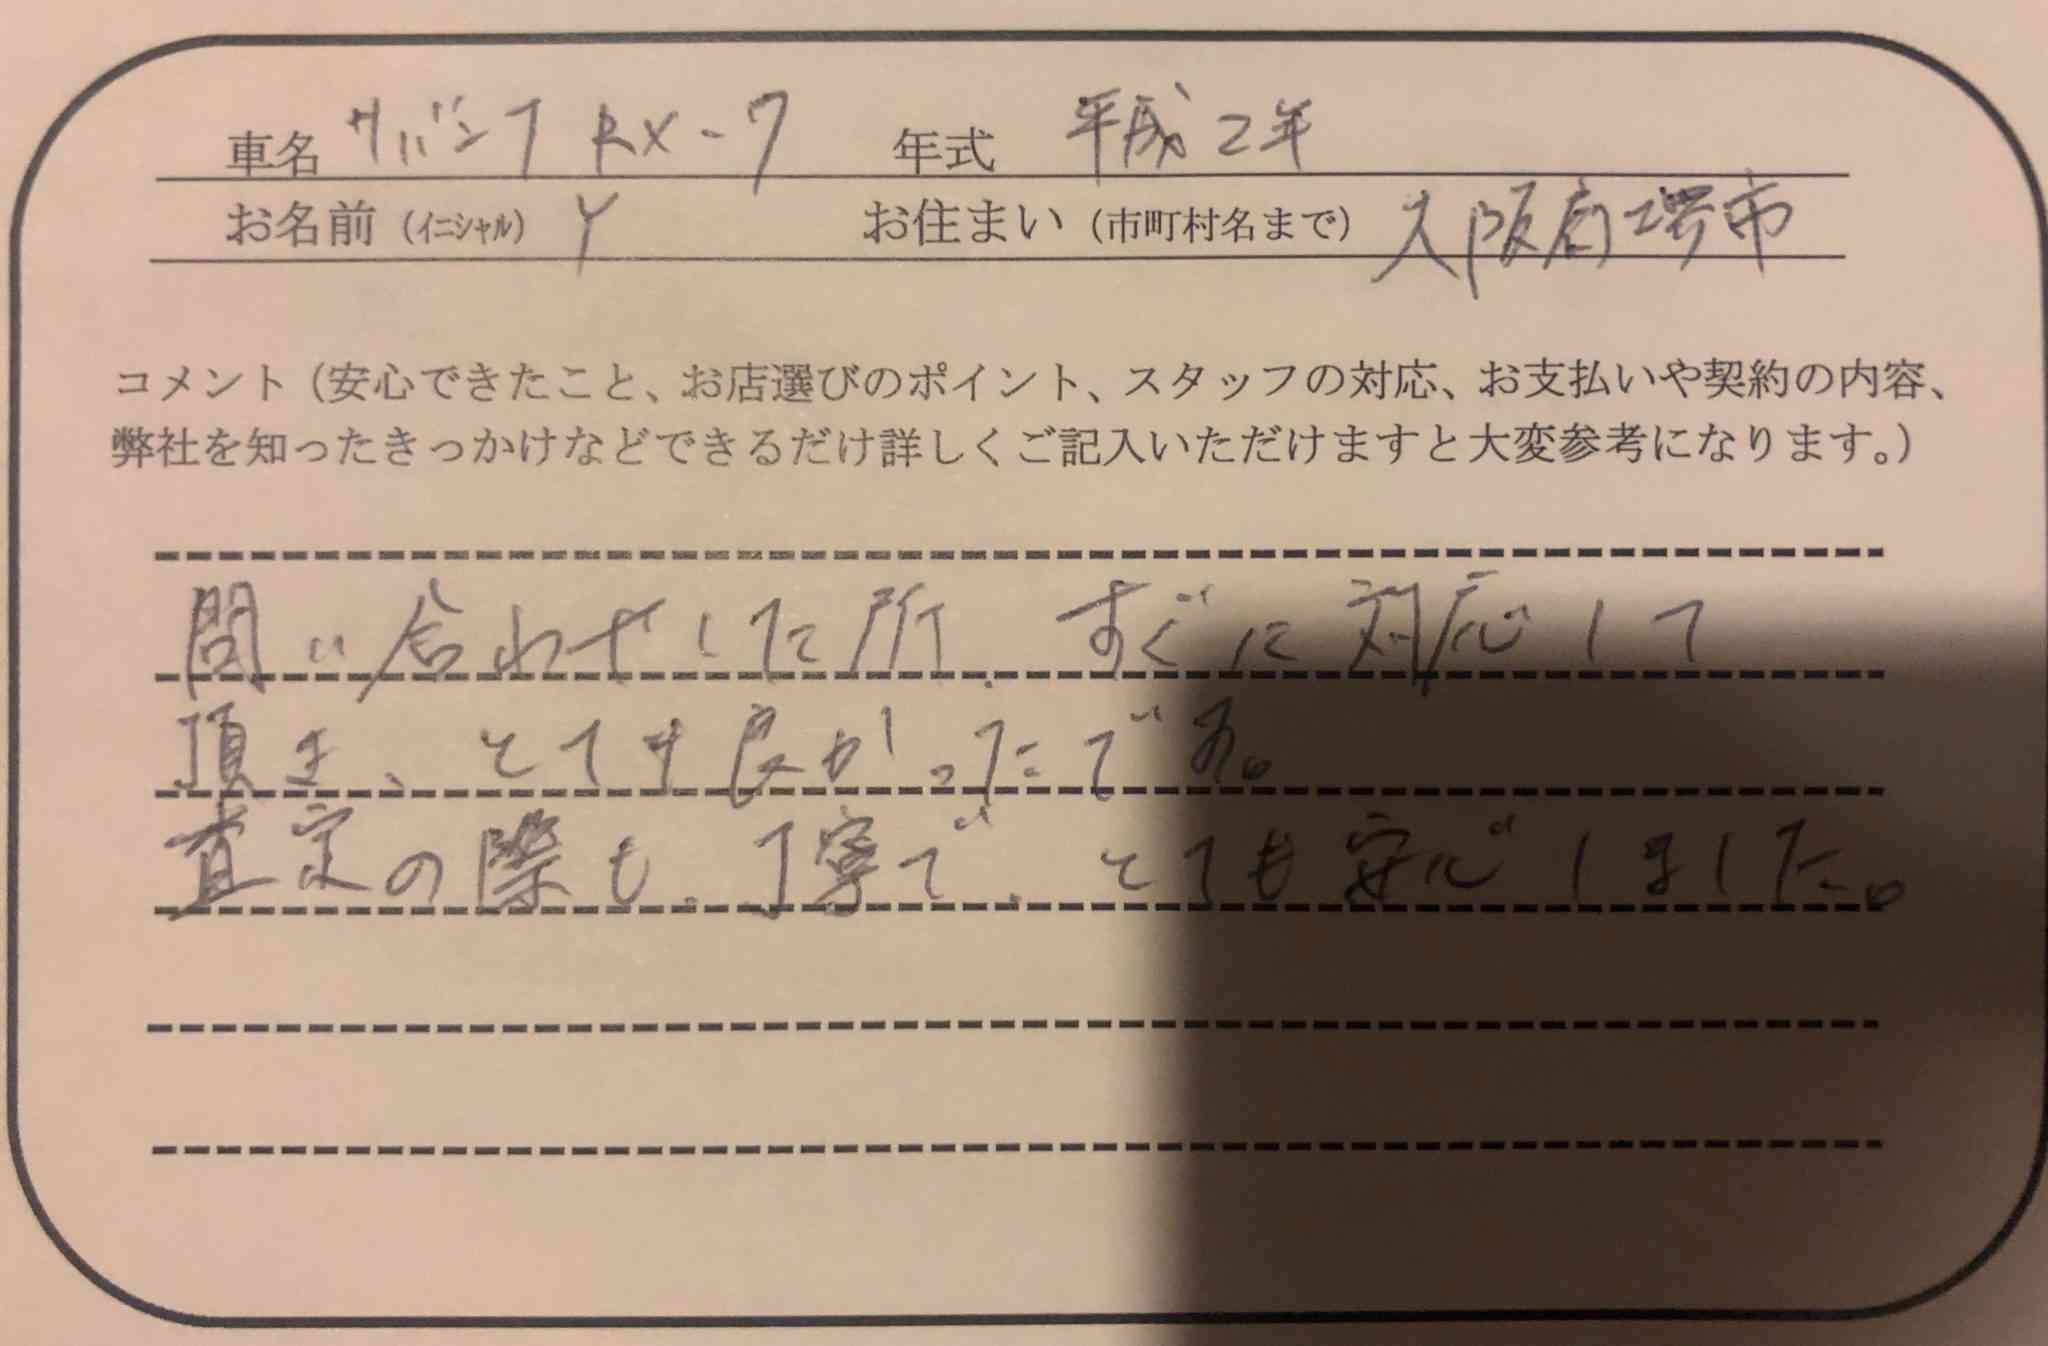 車名 サバンナ RX-7 年式 平成2年
お名前(イニシャル) Y お住まい(市町村名まで) 大阪府堺市
コメント(安心できたこと、お店選びのポイント、スタッフの対応、お支払いや契約の内容、
弊社を知ったきっかけなどできるだけ詳しくご記入いただけますと大変参考になります。)
問い合わせした所、すぐに対応して
頂き、とても良かったです。
査定の際も、丁寧で、とても安心しました。